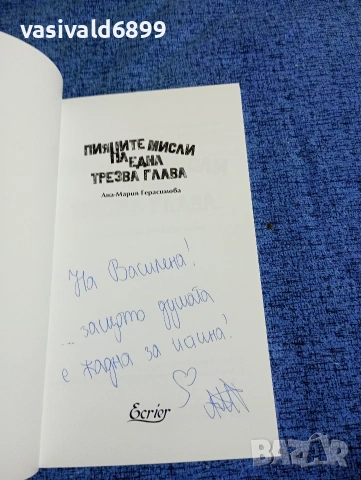 vasivald6899
ПИЯНИТЕ МИСЛИ
НА ЕДНА
ТРЕЗВА ГЛАВА
Ана-Мария Герасимова
На Василена!
... защото душата
е жадна за
Ecrior
BAZAR
bg